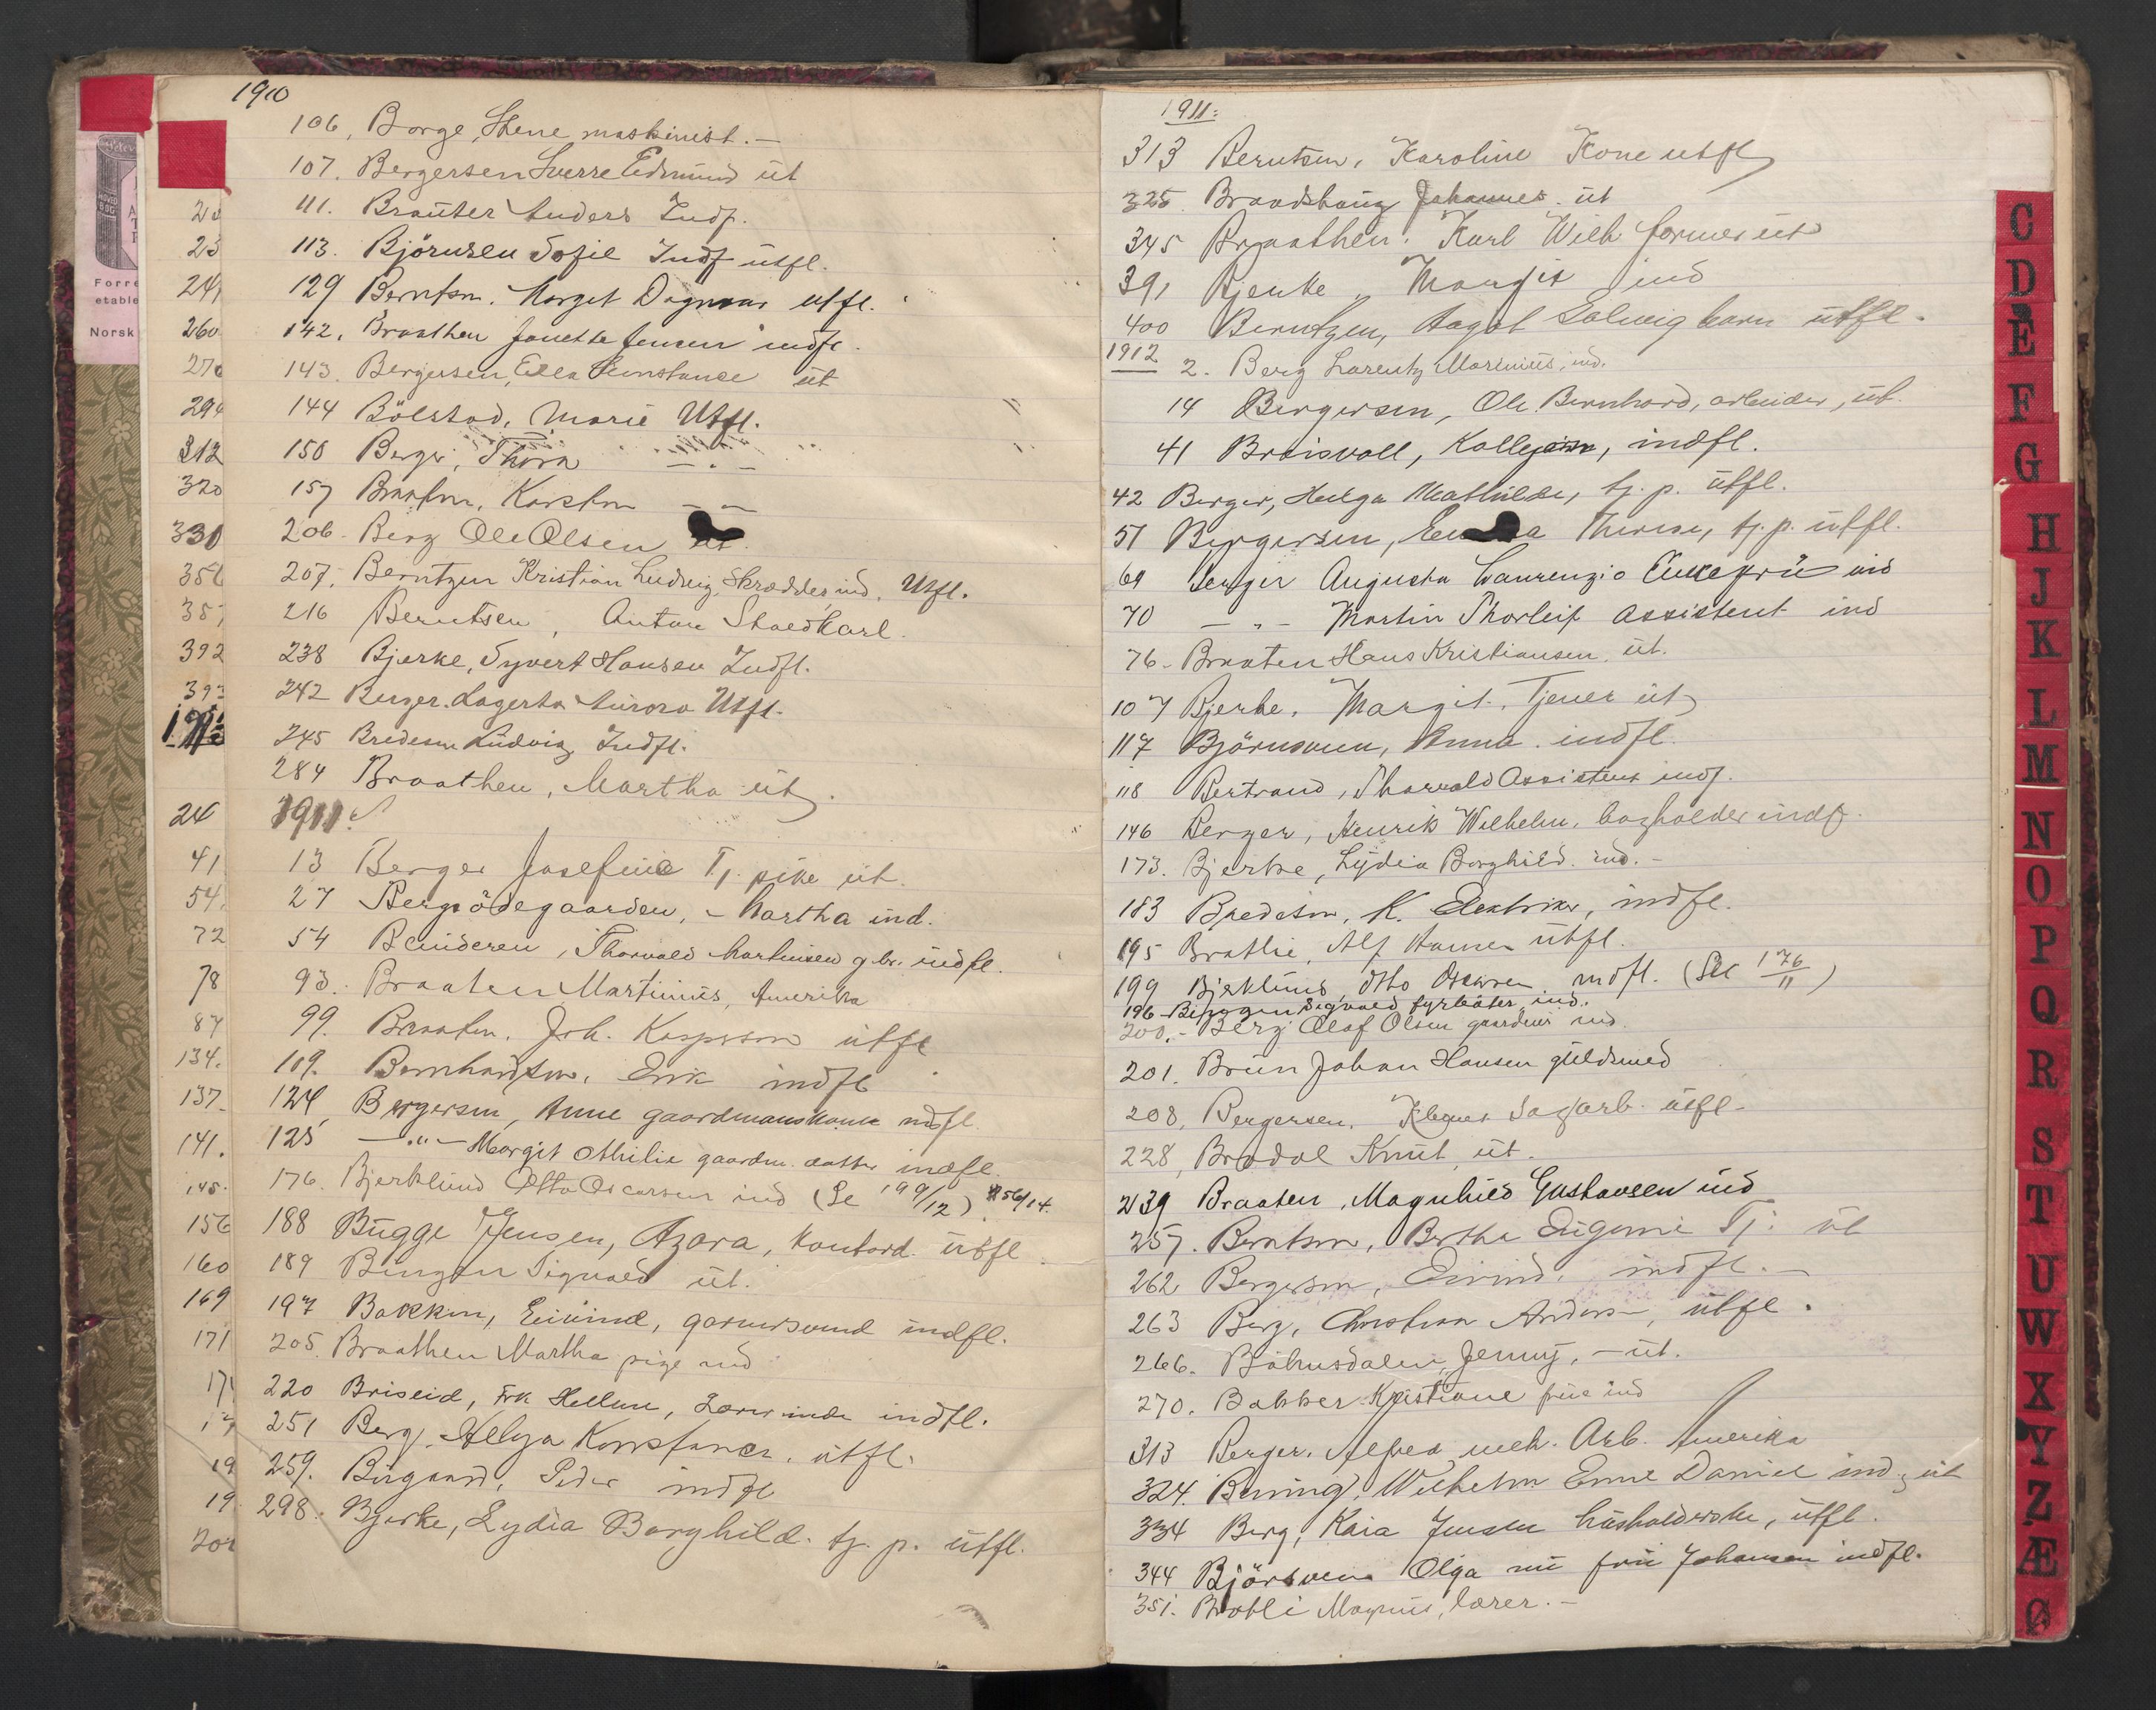 1910
106, Borge, Stene maskinist.-
107. Bergersen Sverre Edmund üt
111. Braüter Anders Indf.
113. Björnsen Sofie Indf ütfl.
129 Berntsn. Margit Dagmar utfl.
142. Braathen Janette Jensen indfl.
143. Bergersen, Ella Konstance üt
144 Bölstad, Marie Utfl.
150 Berger, Thora -"-
157 Braaten, Karsten -"-
206. Berg Ole Olsen üt.
207. Berntzen Kristian Ludvig, Skrædder, ind. Utfl.
216 Berntsen, Anton Staldkarl.
238 Bjerke, Syvert Hansen Indfl.
242 Berger. Lagerta Aurora Utfl.
245 Bredesen Ludvig Indfl.
284 Braathen, Martha üt.
1911.
13 Berger Josefine Tj. pike üt.
27 Bergsödegaarden, - Martha ind.
54 Thorvald Martinsen gbr. indfl.
93. Braaten Martinius, Amerika
99. Braaten, Joh. Kaspersen ütfl
109. Bernhardsen, Erik indfl
124, Bergersen, Anne gaardmanskone indfl.
125 -"- Margit Othilie gaardm. datter indfl.
176. Bjerklund Otto Oscarsen ind (Se 199/12) 56/14.
188 Bügge Jensen, Azora, kontord. ütfl.
189 Bingen Sigvald üt.
197 Bakken, Eivind, garversvend indfl.
205. Braathen Martha pige ind
220 Briseid, Frk Hellene, Lærerinde indfl.
251 Berg, Helga Konstance. utfl.
259. Birgaard, Peder indfl
298. Bjerke, Lydia Borghild. tj. p. ütfl.
23
24
260
294
312
320
330
392
24
41
54.
72
78
87
134.
137.
141.
145.
156
160
169
171
19
19
Forre
etable
Norsk
1911:
313 Berntsen, Karoline Kone utfl
325. Brandshaug Johannes. üt
345 Braathen. Karl Wilh. former üt
391 Bjerke, Margit ind
400 Berntzen, Aagot Solveig barn ütfl.
1912 2. Berg Lorentz Marinius, ind.
14 Bergersen, Ole Bernhard, arbeider, üt.
41 Breisvoll, indfl.
42 Berger, Helga Mathilde, tj. p. ütfl.
51 Bergersen, Emma Therese, tj. p. ütfl.
69 Berger Augusta Laurenzio Enkefrü ind
70 -"- Martin Thorleif assistent ind
76. Braaten Hans Kristiansen. üt.
107 Bjerke. Margit. Tjener üt
117 Björnsven, Anna. indfl.
118 Bertrand, Tharvald Assistent indf.
146 Berger, Henrik Wilhelm. bogholder indf.
173. Bjerke, Lydia Borghild. ind.-
183 Bredesen, K. Elektriker, indfl.
195 Bratlie, Alf Hansen ütfl.
199 Bjerklund, Otto Oscarsen. indfl. (Se 176/11)
196 - Bingen Sigvald fyrbøter, ind.
200.- Berg Olaf Olsen gaardeier ind.
201. Brün Johan Hansen güldsmed
208, Bergersen. Klemet Sagarb. ütfl.
228, Bradal Knüt, üt.
239 Braaten, Magnhild Gustavsen ind
257. Berntsen, Bertha Eugenie Tj. üt
262. Bergersen, Eivind, indfl.-
263 Berg, Christian Anders-, ütfl.
266. Bähusdalen, Jenny, - üt.
270. Bakker Kristiane früe ind
313 Berger. Alfred, mek. Arb. Amerika
324. Bening, Wilhelm Emil Daniel ind, üt
334 Berg, Kaia Jensen hüsholderske, ütfl.
344 Björsven Olga nü frü Johansen indfl.
351. Bratli Magnus, lærer.-
C
D
E
F
G
H
J
K
L
M
N
O
P
Q
R
S
T
U
W
X
Y
Z
Æ
Ø